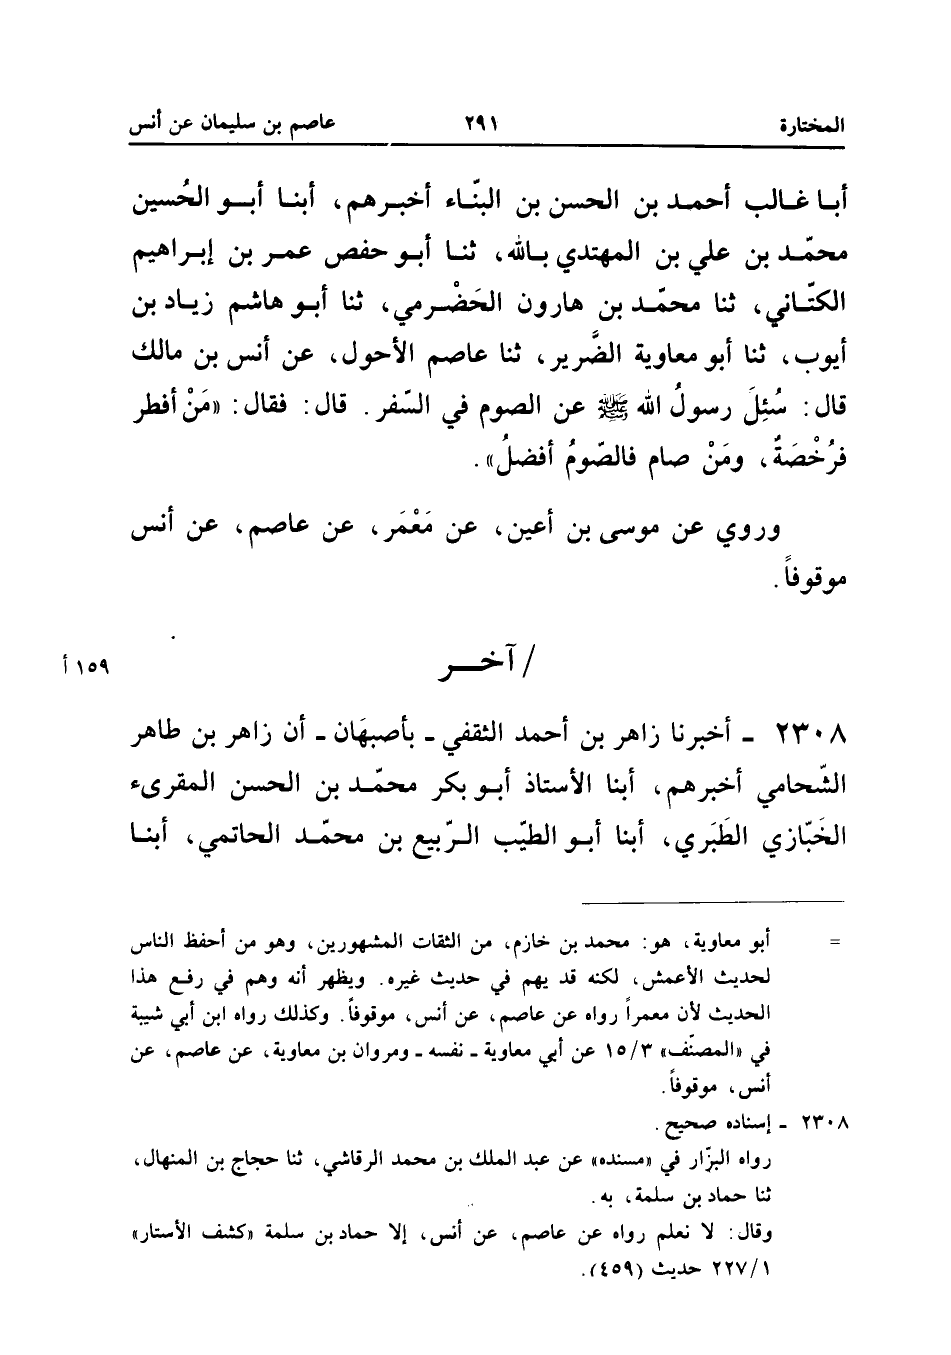 المختارة ٢٩١ عاصم بن سليمان عن أنس
أبا غالب أحمد بن الحسن بن البنّاء أخبرهم، أبنا أبو الحُسين
محمّد بن علي بن المهتدي بالله، ثنا أبو حفص عمر بن إبراهيم
الكتّاني، ثنا محمّد بن هارون الحَضْرمي، ثنا أبو هاشم زياد بن
أيوب، ثنا أبو معاوية الضَّرير، ثنا عاصم الأحول، عن أنس بن مالك
قال: سُئِلَ رسولُ الله ﷺ عن الصوم في السّفر. قال: فقال: «مَنْ أفطر
فرُخْصَةٌ، ومَنْ صام فالصّومُ أفضلُ».
وروي عن موسى بن أعين، عن مَعْمَر، عن عاصم، عن أنس
موقوفاً.
/ آخر
١٥٩ أ
٢٣٠٨ - أخبرنا زاهر بن أحمد الثقفي - بأصبهَان - أن زاهر بن طاهر
الشّحامي أخبرهم، أبنا الأستاذ أبو بكر محمّد بن الحسن المقرىء
الخَبّازي الطَبَري، أبنا أبو الطيّب الرّبيع بن محمّد الحاتمي، أبنا
= أبو معاوية، هو: محمد بن خازم، من الثقات المشهورين، وهو من أحفظ الناس
لحديث الأعمش، لكنه قد يهم في حديث غيره. ويظهر أنه وهم في رفع هذا
الحديث لأن معمراً رواه عن عاصم، عن أنس، موقوفاً. وكذلك رواه ابن أبي شيبة
في «المصنّف» ١٥/٣ عن أبي معاوية - نفسه - ومروان بن معاوية، عن عاصم، عن
أنس، موقوفاً.
٢٣٠٨ - إسناده صحيح.
رواه البزّار في «مسنده» عن عبد الملك بن محمد الرقاشي، ثنا حجاج بن المنهال،
ثنا حماد بن سلمة، به.
وقال: لا نعلم رواه عن عاصم، عن أنس، إلا حماد بن سلمة «كشف الأستار»
٢٢٧/١ حديث (٤٥٩).